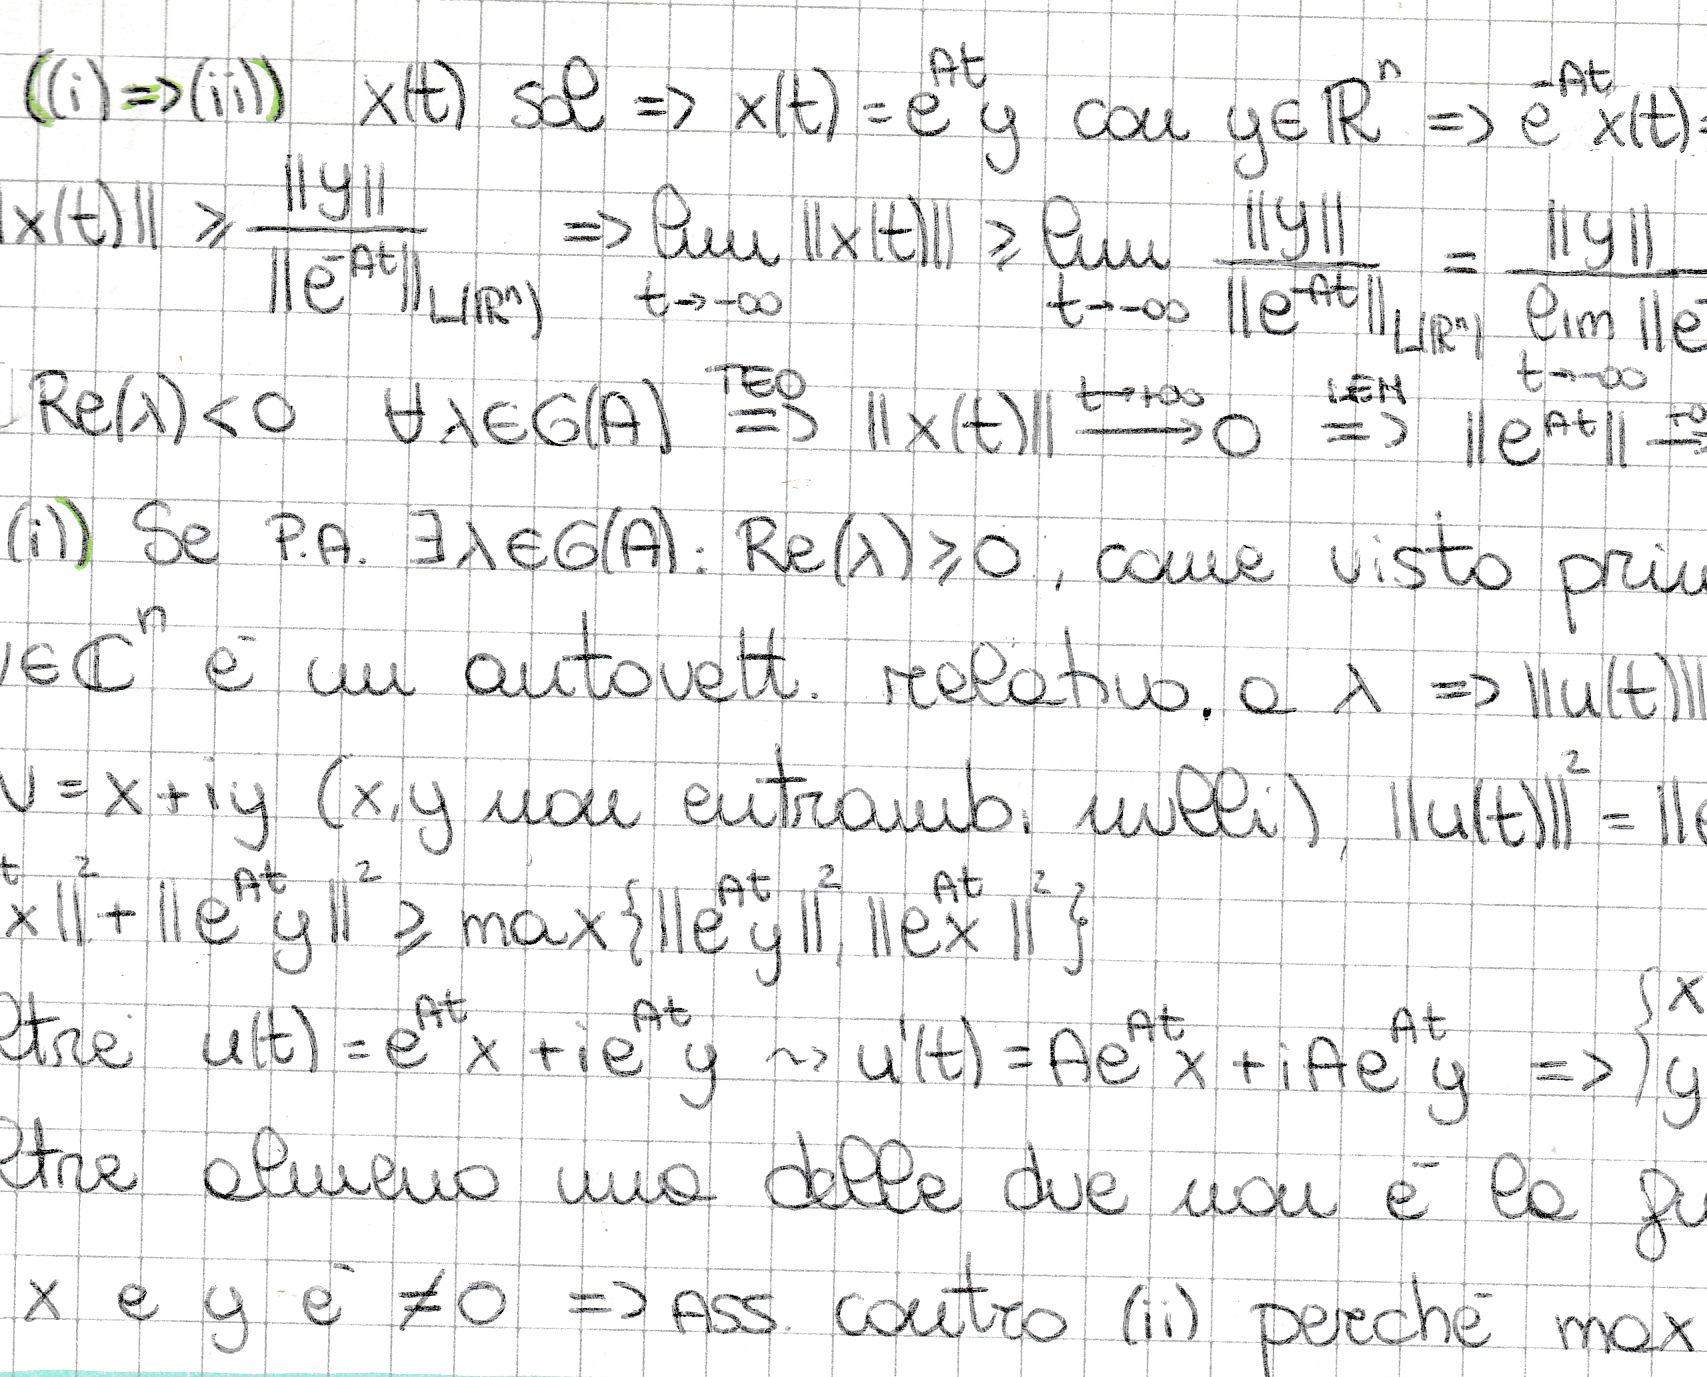 ((i) => (ii)) x(t) sol => x(t) = e^{At} y con y ∈ ℝ^n => e^{-At} x(t) =
||x(t)|| ≥ ||y|| / ||e^{-At}||_{L(ℝ^n)} => lim_{t→-∞} ||x(t)|| ≥ lim_{t→-∞} ||y|| / ||e^{-At}||_{L(ℝ^n)} = ||y|| / lim_{t→-∞} ||e^-
Re(λ) < 0 ∀λ∈σ(A) =>^{TEO} ||x(t)|| →^{t→+∞} 0 =>^{LEM} ||e^{At}|| →
(i)) Se P.A. ∃λ∈σ(A): Re(λ) ≥ 0, come visto prim
v∈ℂ^n è un autovett. relativo. a λ => ||u(t)||
v = x + iy (x,y non entrambi nulli), ||u(t)||² = ||e
^t x||² + ||e^{At} y||² ≥ max{||e^{At} y||², ||e^{At} x||²}
ltre u(t) = e^{At} x + i e^{At} y ~> u'(t) = A e^{At} x + i A e^{At} y => { x y
ltre almeno una delle due non è la fu
x e y è ≠ 0 => ASS. contro (ii) perché max